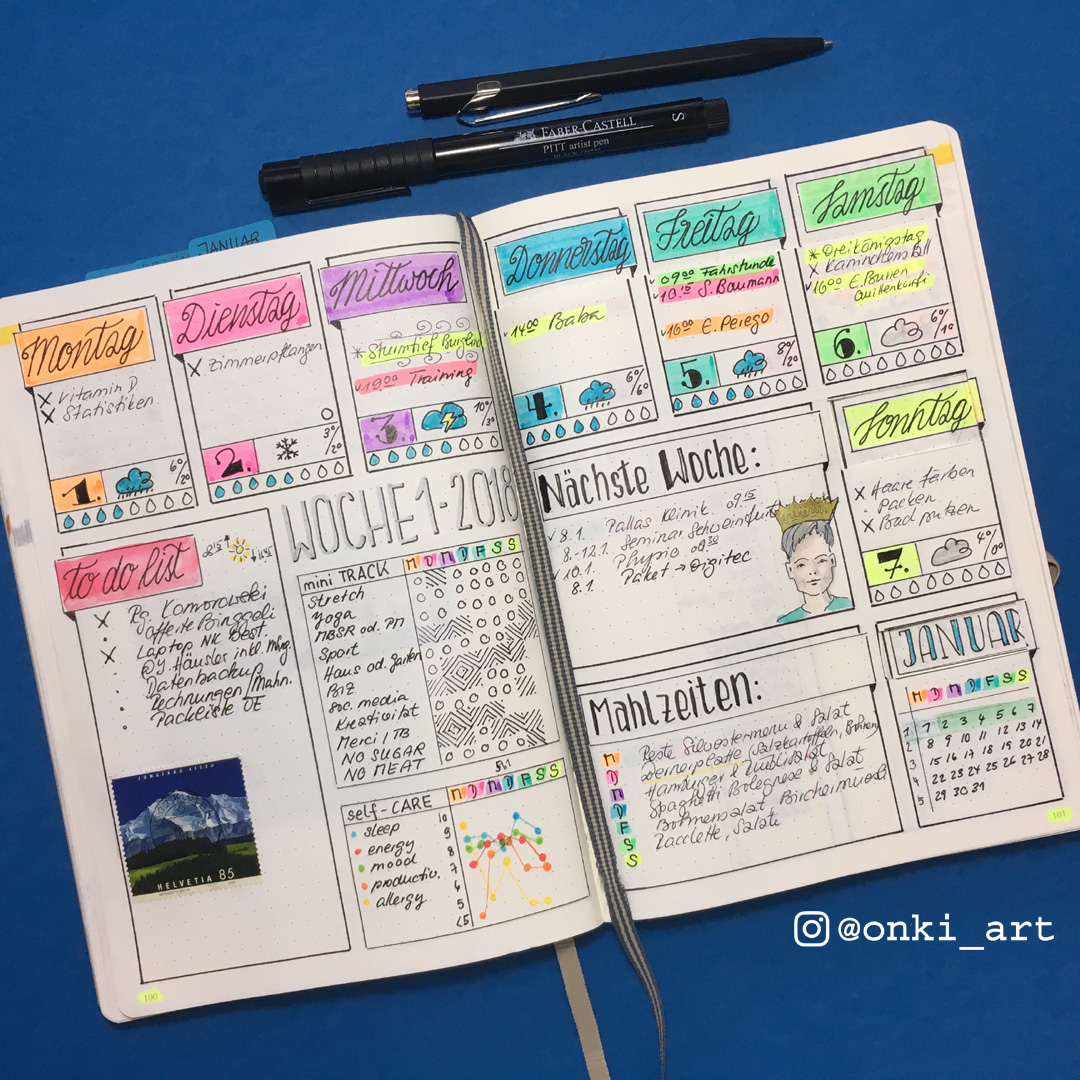 FABER-CASTELL
PITT artist pen
S
JANUAR
Montag
X Vitamin D
X Statistiken
1.
6°/2°
Dienstag
X Zimmerpflanzen
2.
3°/2°
Mittwoch
* Sturmtief Burglind
19⁰⁰ Training
3.
10°/3°
WOCHE 1-2018
to do list
X Rg. Komorowski
Offerte Binggeli
Laptop NK Best.
Datenbackup
Rechnungen/Mahn.
Packliste DE
JUNGFRAU 4158m
HELVETIA 85
mini TRACK
M D M D F S S
Stretch
Yoga
MBSR od. PM
Sport
Haus od. Garten
BIZ
Soc. media
Kreativität
Merci / TB
NO SUGAR
NO MEAT
self-CARE
M D M D F S S
sleep
energy
mood
productiv.
allergy
10
9
8
7
6
5
<5
100
Donnerstag
✓14⁰⁰ Baba
4.
6°/6°
Freitag
✓09⁰⁰ Fahrstunde
✓10.15 S. Baumann
✓16⁰⁰ E. Perego
5.
8°/2°
Samstag
* Dreikönigstag
X Kaninchenstall
6.
6°/1°
Nächste Woche:
✓ 8.1. Pallas Klinik 09.15
8.-12.1. Seminar Schweinfurt
✓ 10.1. Physio 09³⁰
8.1. Paket → Digitec
Sonntag
X Haare färben
Packen
X Bad putzen
7.
4°/0°
Mahlzeiten:
M Reste Silvestermenu & Salat
D Bernerplatte (Salzkartoffeln, Bohnen)
M Hamburger & Nüsslisalat
D Spaghetti Bolognese & Salat
F Bohnensalat, Birchermuesli
S Raclette, Salate
S
JANUAR
M D M D F S S
1 1 2 3 4 5 6 7
2 8 9 10 11 12 13 14
3 15 16 17 18 19 20 21
4 22 23 24 25 26 27 28
5 29 30 31
101
@onki_art